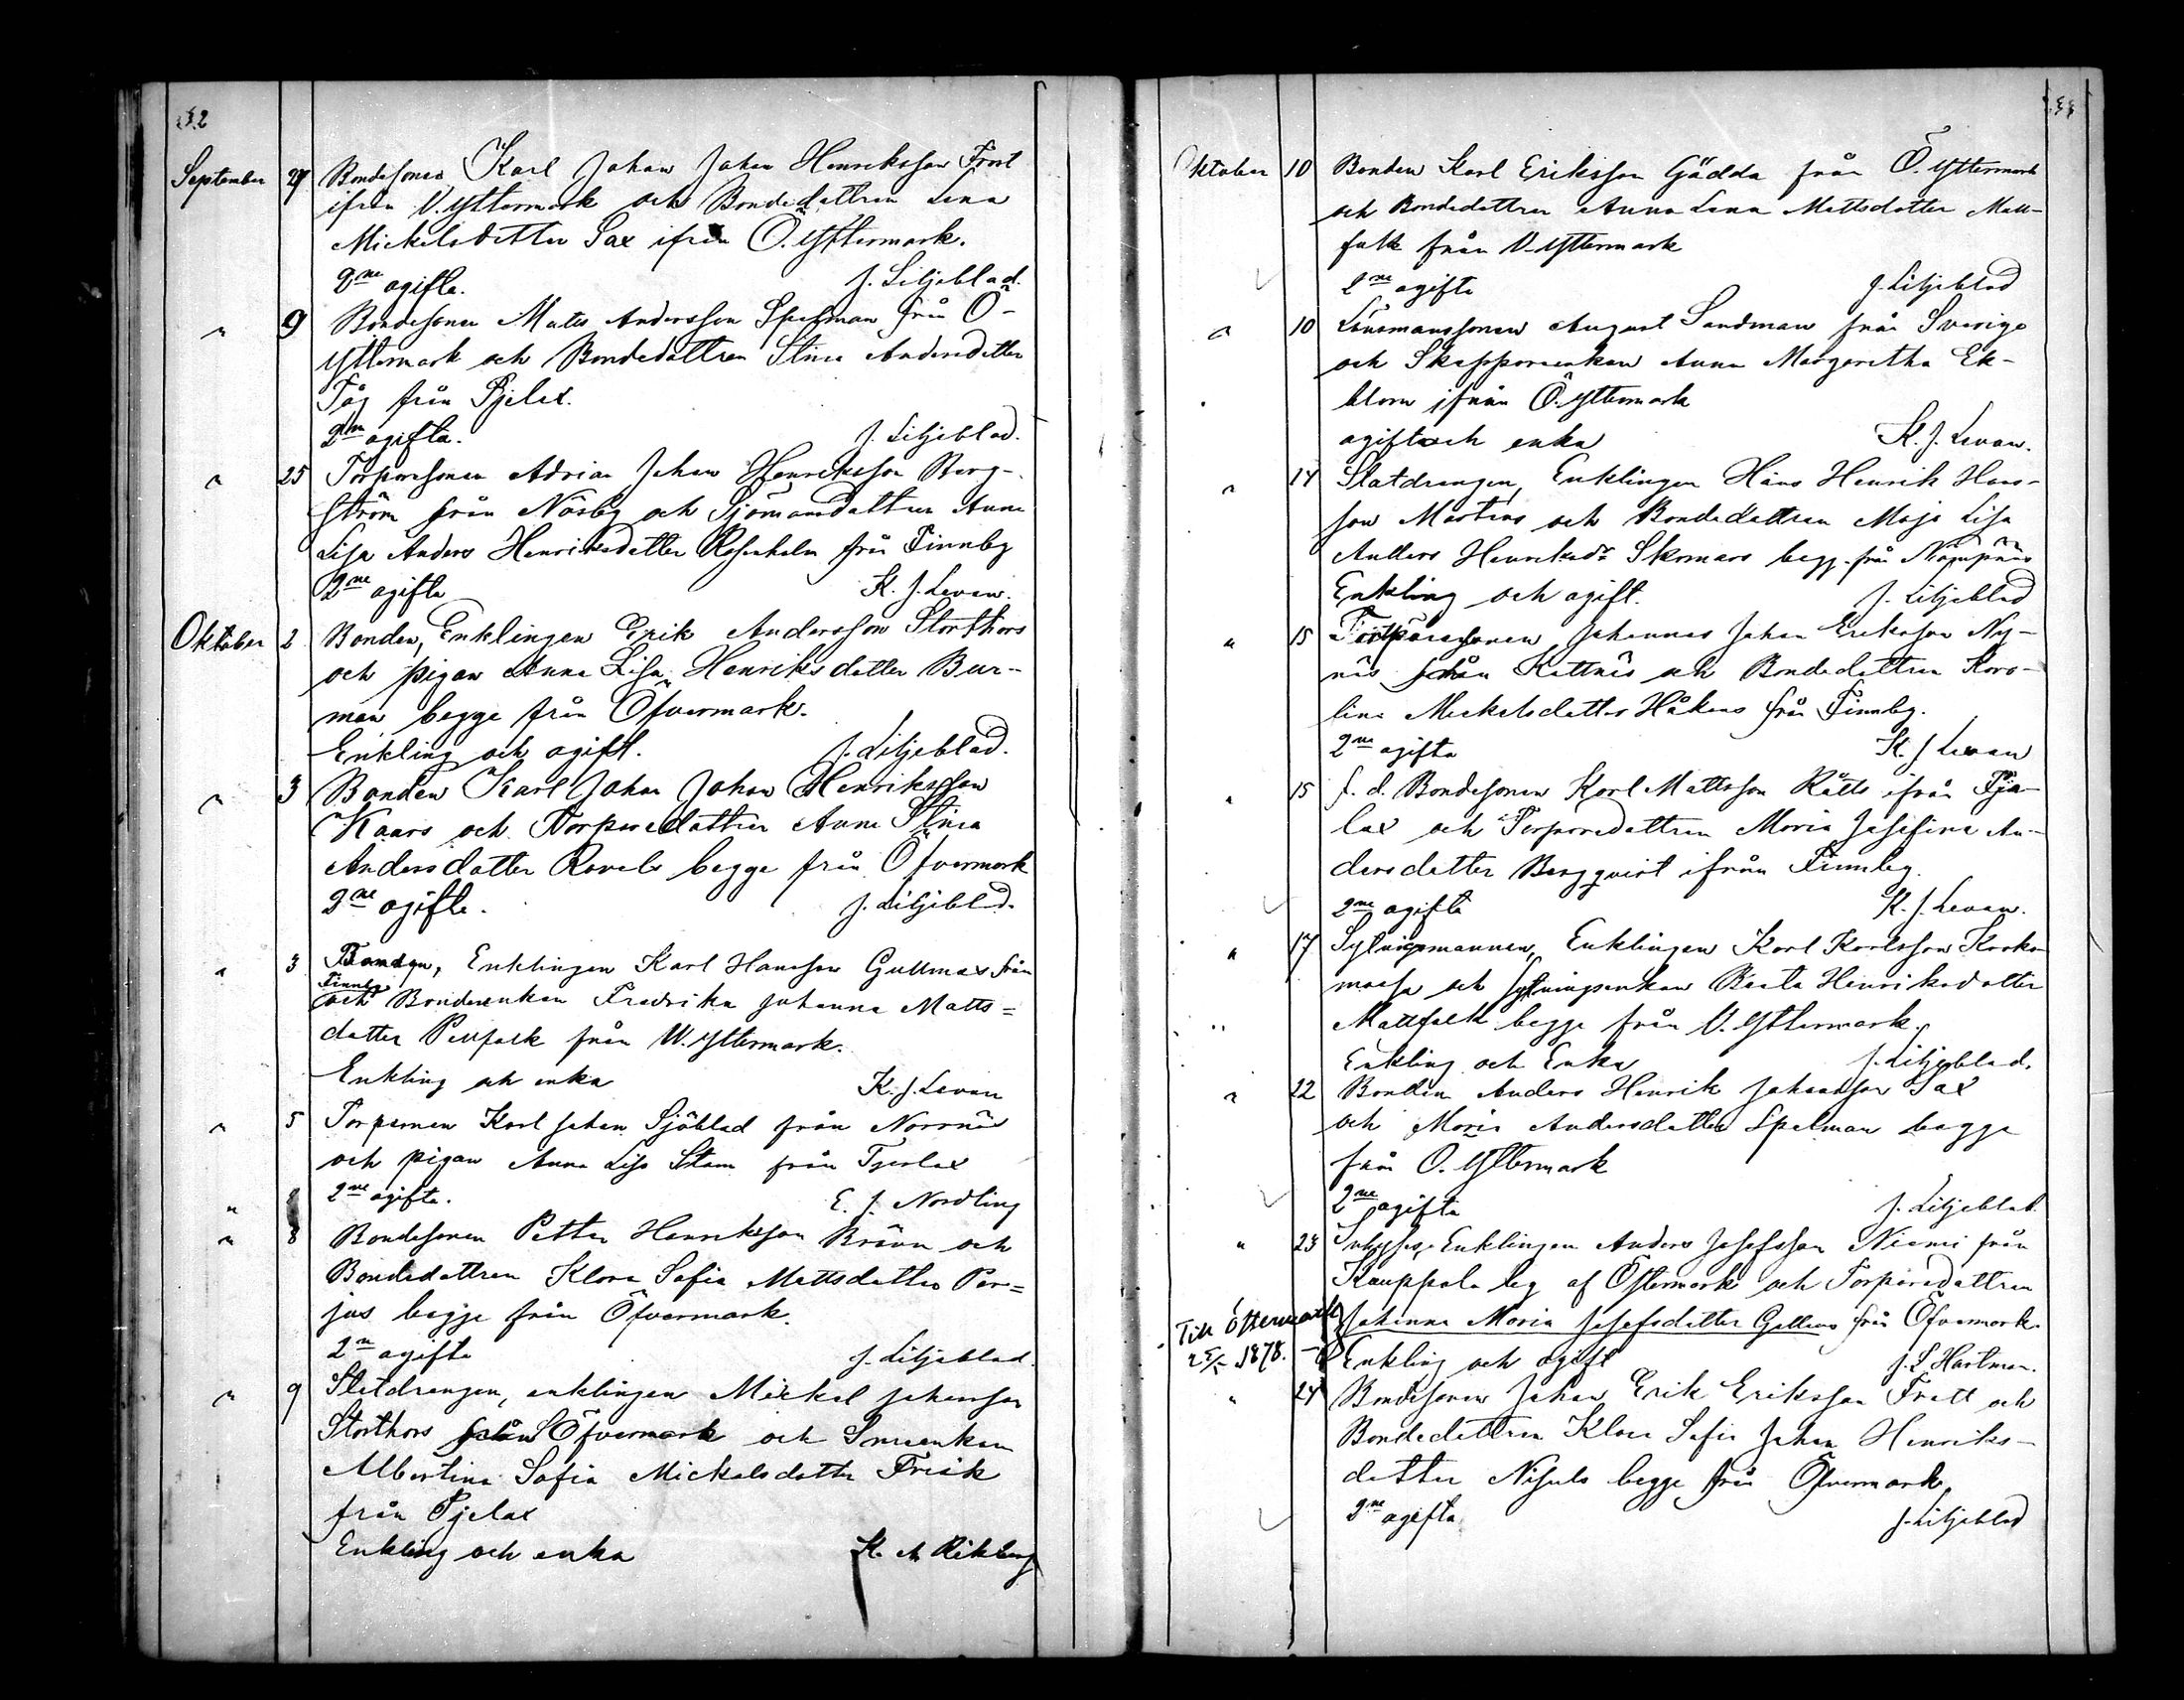 132
September 27 Bondesonen Karl Johan Johan Henriksson Frost
ifrån V. Yttermark och Bondedattren Lena
Mickelsdotter Sax ifrån Ö. Yttermark.
2ne ogifta. J. Liljeblad.
" 9 Bondesonen Matts Andersson Spelman från Ö-
Yttermark och Bondedattren Stina Andersdotter
Tåg från Pjelax.
2ne ogifta. J. Liljeblad.
" 25 Torparesonen Adrian Johan Henriksson Berg-
ström från Näsby och Sjömansdattren Anna
Lisa Anders Henriksdatter Rosenholm från Finnby
2ne ogifta K. J. Levan.
Oktober 2 Bonden, Enklingen Erik Andersson Storthors
och pigan Anna Lisa Henriksdatter Bur-
man begge från Öfvermark.
Enkling och ogift. J. Liljeblad.
" 3 Bonden Karl Johan Johan Henriksson
Kaars och Torparedattren Anna Stina
Andersdatter Revels begge från Öfvermark
2ne ogifta. J. Liljeblad.
" 3 Bonden, Enklingen Karl Hansson Gullmas från
Finnby
och Bondeenkan Fredrika Johanna Matts=
datter Pellfolk från W. Yttermark.
Enkling och enka K. J. Levan
" 5 Torparen Karl Johan Sjöblad från Norrnäs
och pigan Anna Lisa Stam från Tjerlax
" 8 2ne ogifta. E. J. Nordling
" 8 Bondesonen Petter Henriksson Bränn och
Bondedattren Klara Sofia Mattsdatter Por=
jus begge från Öfvermark.
2ne ogifta J. Liljeblad.
" 9 Statdrengen, enklingen Mickel Johansson
Storthors från Öfvermark och Smeenkan
Albertina Sofia Mickelsdatter Frisk
från Pjelax
Enkling och enka K. A. Rikberg
133
Oktober 10 Bonden Karl Eriksson Gädda från Ö. Yttermark
och Bondedattren Anna Lena Mattsdotter Matt-
folk från V. Yttermark
2ne ogifta J. Liljeblad
" 10 Länsmanssonen August Sandman från Sverige
och Skepparenkan Anna Margaretha Ek-
blom ifrån Ö. Yttermark
ogift och enka K. J. Levan.
" 14 Statdrengen, Enklingen Hans Henrik Hans-
son Mårtens och Bondedattren Maja Lisa
Anders Henriksdr Skomars begg. från Nämpnäs
Enkling och ogift. J. Liljeblad
" 15 Torparesonen Johannes Johan Eriksson Ny-
näs från Kattnäs och Bondedattren Karo-
lina Mickelsdatter Håkans från Finnby.
2ne ogifta K. J. Levan
" 15 f. d. Bondesonen Karl Mattsson Rätts ifrån Pje-
lax och Torparedattren Maria Josefina An-
dersdatter Bergqvist ifrån Finnby.
2ne ogifta K. J. Levan.
" 17 Sytningsmannen, Enklingen Karl Karlsson
och Sytningsenkan Beata Henriksdatter
Mattfolk begge från V. Yttermark.
Enkling och Enka J. Liljeblad.
" 22 Bonden Anders Henrik Johansson Sax
och Maria Andersdatter Spelman begge
från Ö. Yttermark
2ne ogifta J. Liljeblad.
" 23 Inhyses, Enklingen Anders Josefsson Niemi från
Kauppala by af Östermark och Torparedattren
Till Östermark Johanna Maria Josefsdatter Gallens från Öfvermark.
1878. Enkling och ogift J. L. Hartman.
" 24 Bondesonen Johan Erik Eriksson Fratt och
Bondedattren Klara Sofia Johan Henriks-
datter Nisuls begge från Öfvermark
2ne ogifta J. Liljeblad